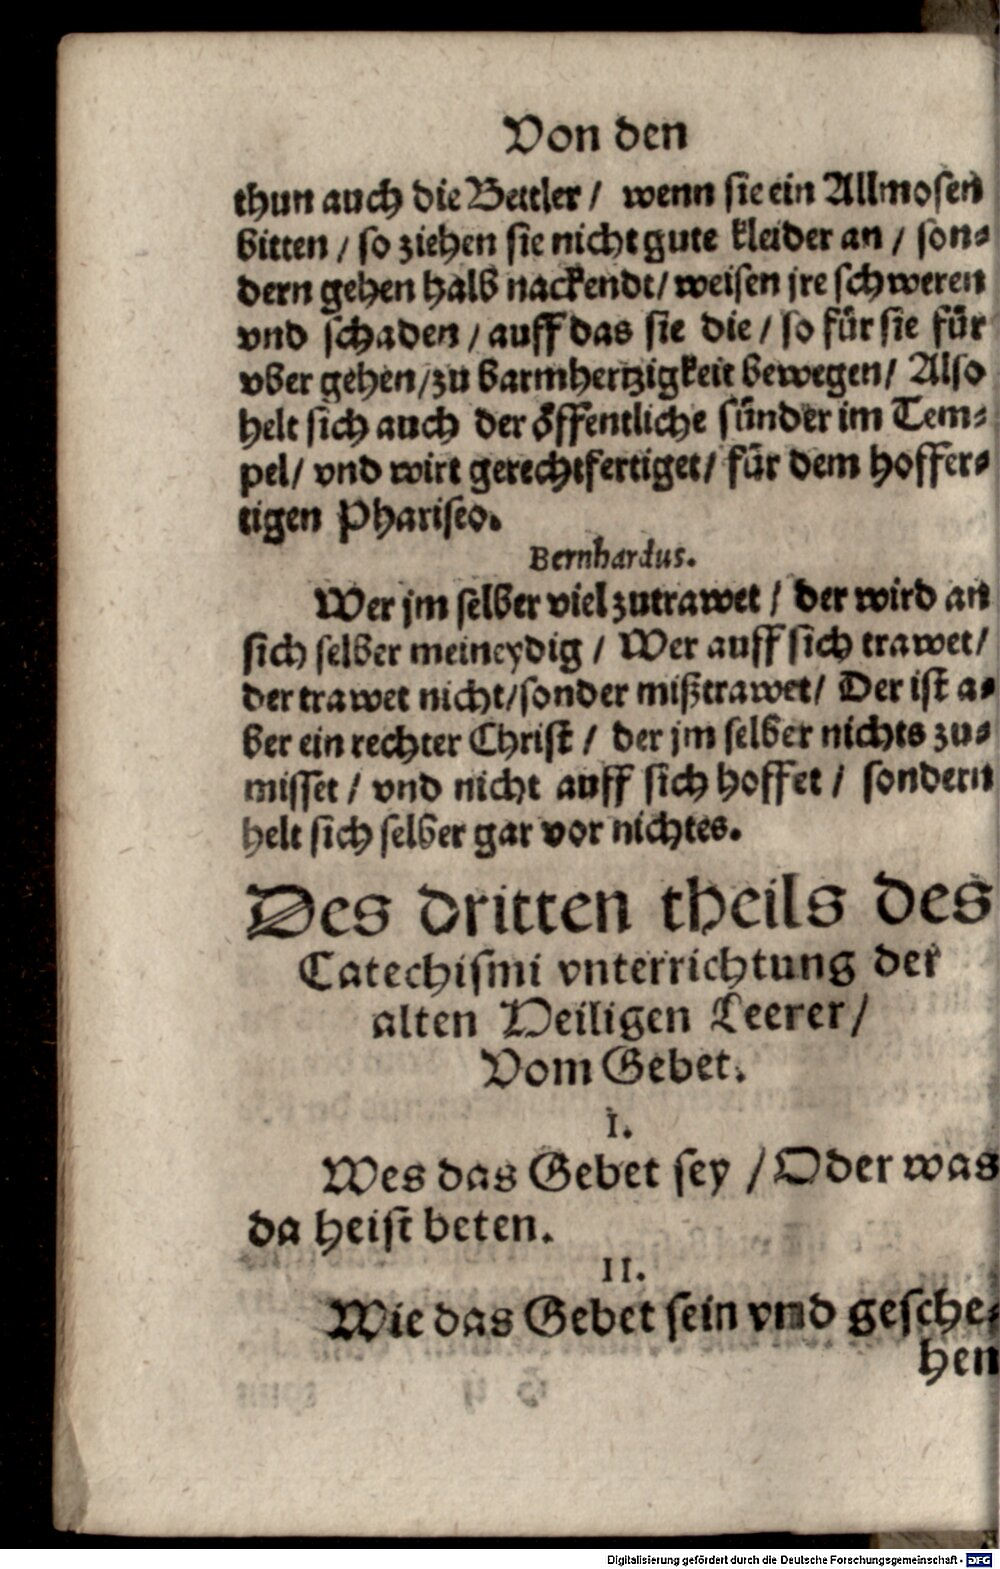 Von den
thun auch die Bettler / wenn sie ein Allmosen
bitten / so ziehen sie nicht gute kleider an / son-
dern gehen halb nackendt / weisen jre schweren
vnd schaden / auff das sie die / so für sie für
vber gehen / zu barmhertzigkeit bewegen / Also
helt sich auch der öffentliche sünder im Tem-
pel / vnd wirt gerechtfertiget / für dem hoffer-
tigen Phariseo.
Bernhardus.
Wer jm selber viel zutrawet / der wird an
sich selber meineydig / Wer auff sich trawet /
der trawet nicht / sonder mißtrawet / Der ist a-
ber ein rechter Christ / der jm selber nichts zu-
misset / vnd nicht auff sich hoffet / sondern
helt sich selber gar vor nichtes.
Des dritten theils des
Catechismi vnterrichtung der
alten Heiligen Leerer /
Vom Gebet.
I.
Wes das Gebet sey / Oder was
da heist beten.
II.
Wie das Gebet sein vnd gesche-
hen
Digitalisierung gefördert durch die Deutsche Forschungsgemeinschaft - DFG